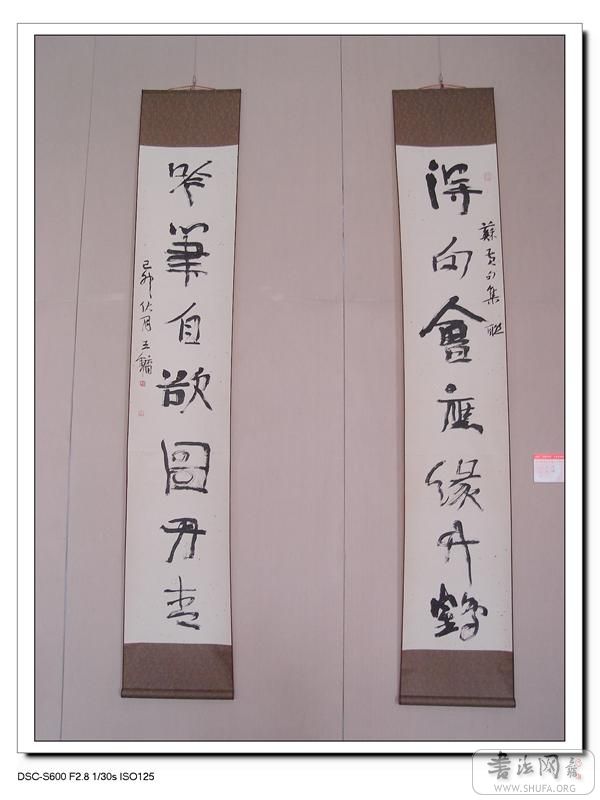 得句會應緣竹鶴
蘇黃句集聯
吟筆自欲圖丹青
己卯伏月王鏞
DSC-S600 F2.8 1/30s ISO125
書法网
WWW.SHUFA.ORG